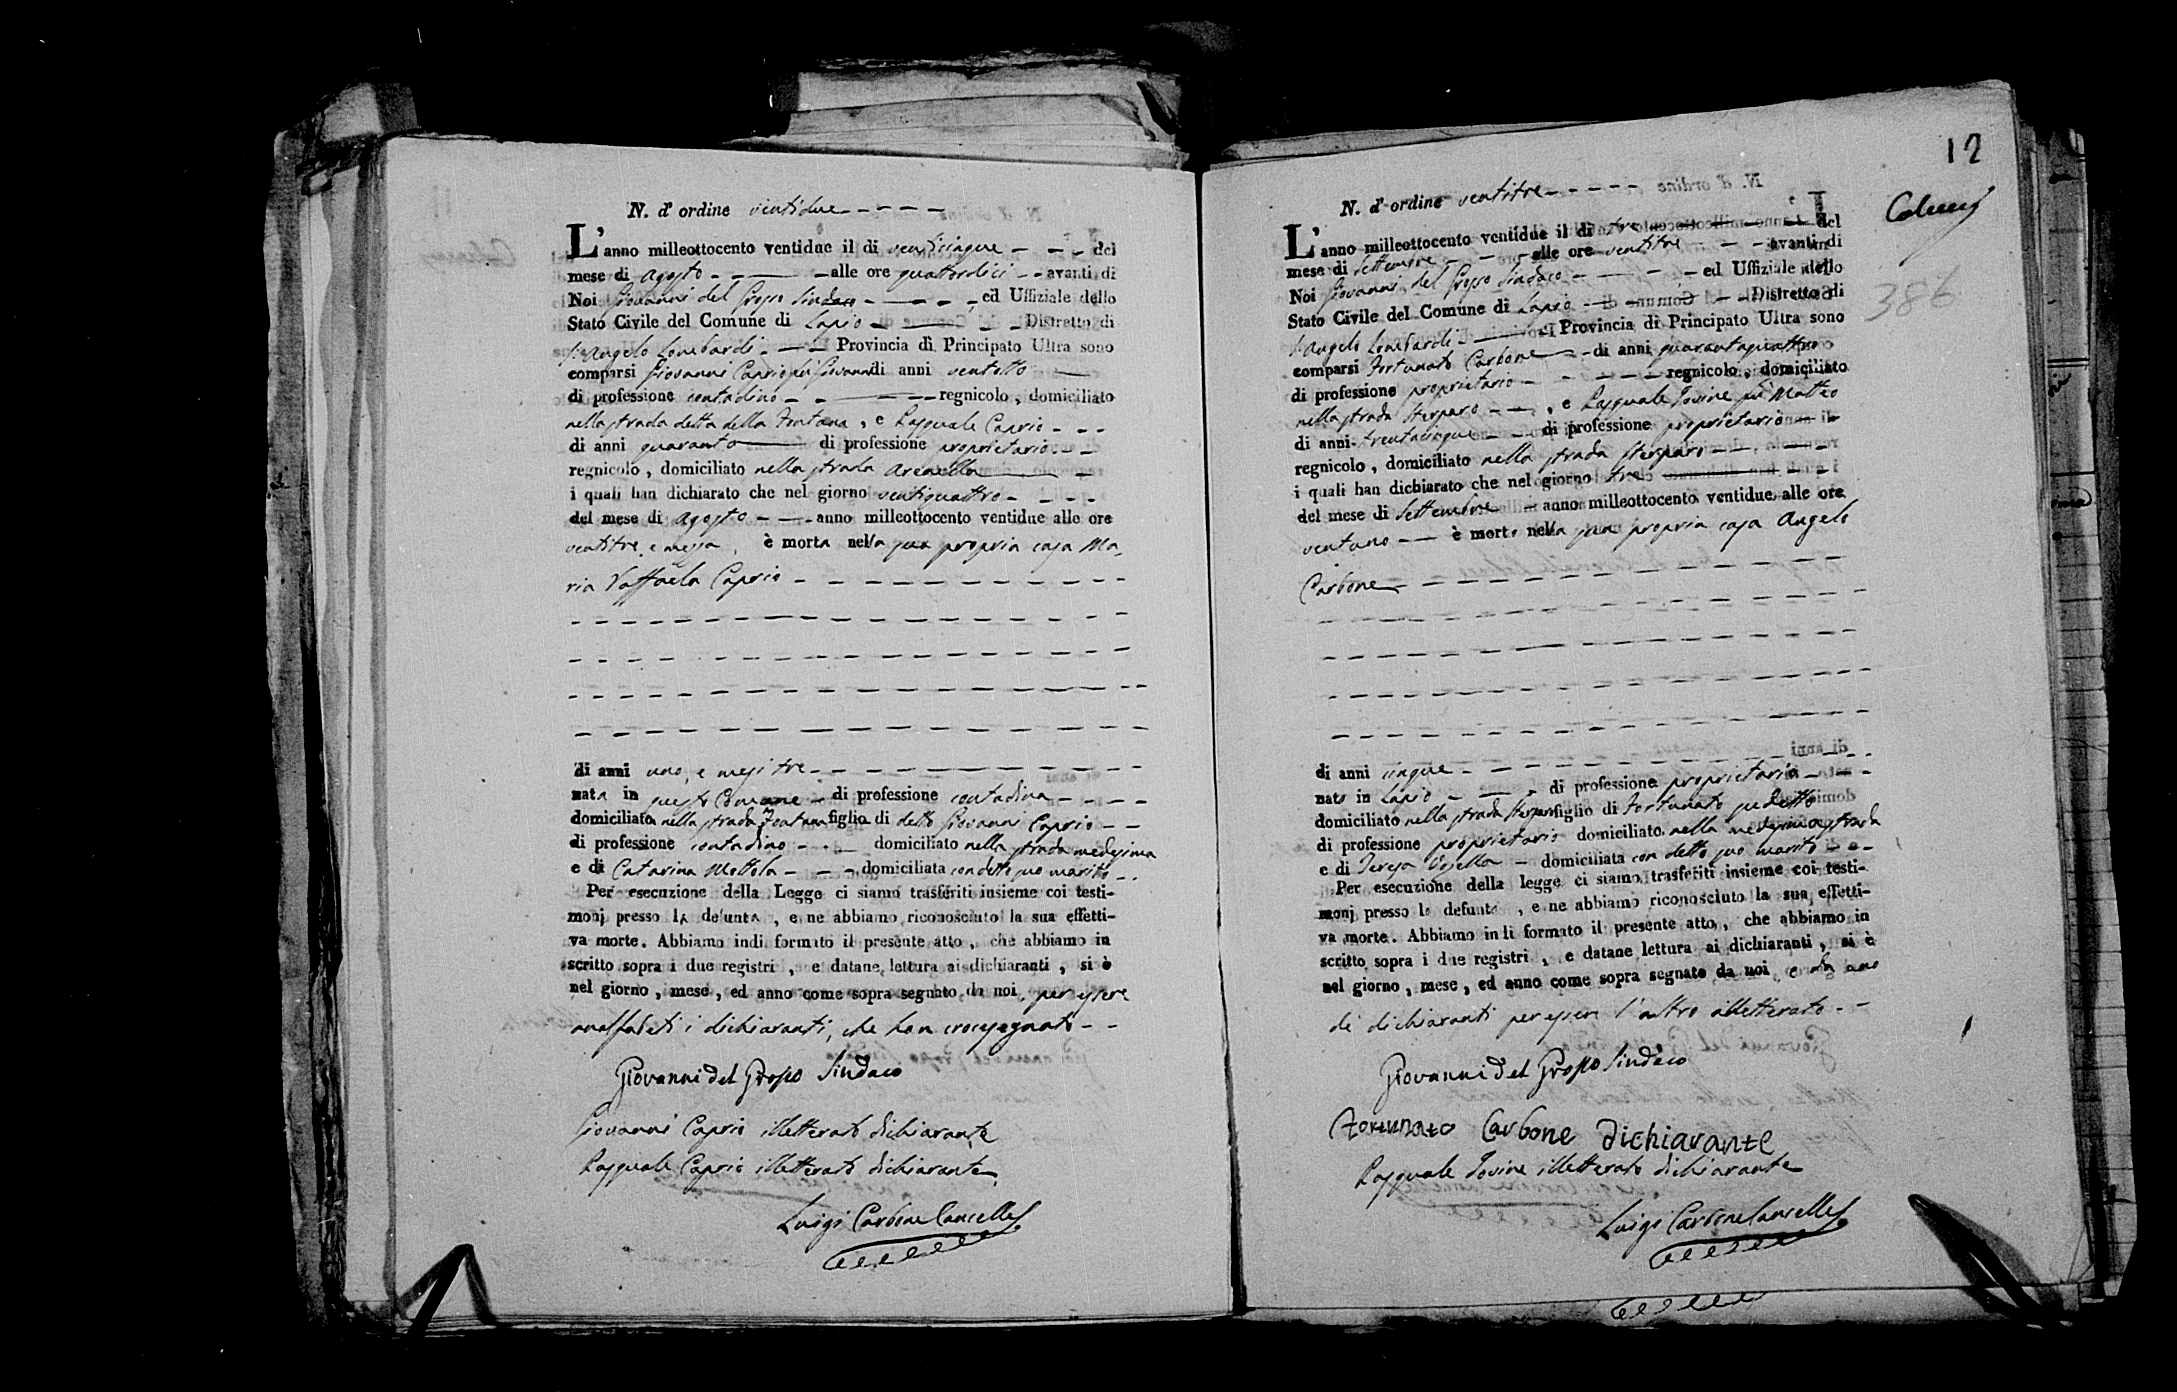 N. d' ordine ventidue
L'anno milleottocento ventidue il di venticinque del
mese di Agosto alle ore quattordici avanti di
Noi Giovanni del Grosso Sindaco ed Uffiziale dello
Stato Civile del Comune di Lapio Distretto di
S. Angelo Lombardi Provincia di Principato Ultra sono
comparsi Giovanni Caprio di anni ventotto
di professione contadino regnicolo, domiciliato
nella strada detta della Fontana, e Pasquale Caprio
di anni quaranta di professione proprietario
regnicolo, domiciliato nella strada Arenella
i quali han dichiarato che nel giorno ventiquattro
del mese di Agosto anno milleottocento ventidue alle ore
ventitre, e mezza, è morta nella sua propria casa Ma,
ria Raffaela Caprio
di anni uno, e mesi tre
nata in questo Comune di professione contadina
domiciliata nella strada Fontana figlia di detto Giovanni Caprio
di professione contadino domiciliato nella strada medesima
e di Catarina Mottola domiciliata con detto suo marito
Per esecuzione della Legge ci siamo trasferiti insieme coi testi-
monj presso la defunta, e ne abbiamo riconosciuto la sua effetti-
va morte. Abbiamo indi formato il presente atto, che abbiamo in
scritto sopra i due registri, e datane lettura ai dichiaranti, si è
nel giorno, mese, ed anno come sopra segnato da noi, per essere
analfabeti i dichiaranti, che han crocesegnato
Giovanni del Grosso Sindaco
Giovanni Caprio illetterato dichiarante
Pasquale Caprio illetterato dichiarante
Luigi Carbone Cancelle
12
N. d' ordine ventitre
L'anno milleottocento ventidue il di tre del
mese di Settembre alle ore ventitre avanti di
Noi Giovanni del Grosso Sindaco ed Uffiziale dello
Stato Civile del Comune di Lapio Distretto di
S. Angelo Lombardi Provincia di Principato Ultra sono
comparsi Fortunato Carbone di anni quarantaquattro
di professione proprietario regnicolo, domiciliato
nella strada Sterparo, e Pasquale Iovine fu Matteo
di anni trentacinque di professione proprietario
regnicolo, domiciliato nella strada Sterparo
i quali han dichiarato che nel giorno tre
del mese di Settembre anno milleottocento ventidue alle ore
ventuno è morto nella sua propria casa Angelo
Carbone
di anni cinque
nato in Lapio di professione proprietario
domiciliato nella strada Sterparo figlio di Fortunato sudetto
di professione proprietario domiciliato nella medesima strada
e di Teresa domiciliata con detto suo marito
Per esecuzione della legge ci siamo trasferiti insieme coi testi-
monj presso lo defunto, e ne abbiamo riconosciuto la sua effetti-
va morte. Abbiamo indi formato il presente atto, che abbiamo in
scritto sopra i due registri, e datane lettura ai dichiaranti, si è
nel giorno, mese, ed anno come sopra segnato da noi, e da uno
de' dichiaranti per essere l'altro illetterato
Giovanni del Grosso Sindaco
Fortunato Carbone dichiarante
Pasquale Iovine illetterato dichiarante
Luigi Carbone Cancelle
386